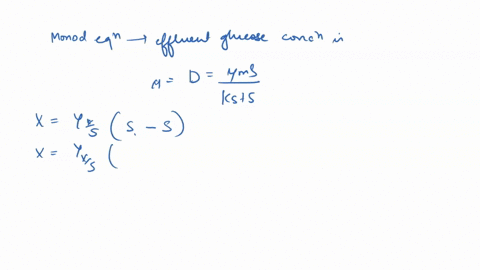 Monod eqⁿ → effluent glucose concⁿ is
μ = D = μmS / Ks+S
X = Y x/s ( S. - S )
X = Y x/s (